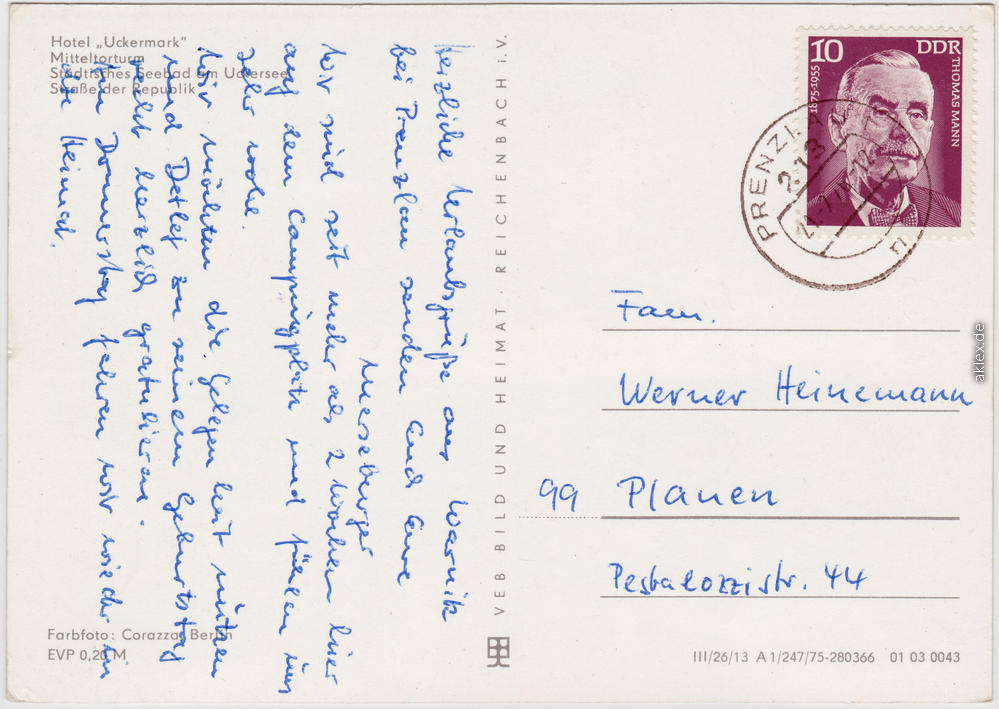 Hotel „Uckermark"
Mitteltorturm
Städtisches Seebad am Uckersee
Straße der Republik
Herzliche Urlaubsgrüße aus Warnik
bei Prenzlau senden Euch Eure
Merseburger
Wir sind seit mehr als 2 Wochen hier
auf dem Campingplatz und fühlen uns
sehr wohl.
Wir möchten die Gelegenheit nützen
und Detlef zu seinem Geburtstag
recht herzlich gratulieren.
Am Donnerstag fahren wir wieder in
die Heimat.
Farbfoto: Corazza, Berlin
EVP 0,20 M
VEB BILD UND HEIMAT · REICHENBACH i. V.
10 DDR
1875-1955
THOMAS MANN
PRENZLAU
213
Fam.
Werner Heinemann
99 Plauen
Pestalozzistr. 44
III/26/13 A 1/247/75-280366 01 03 0043
aklex.de